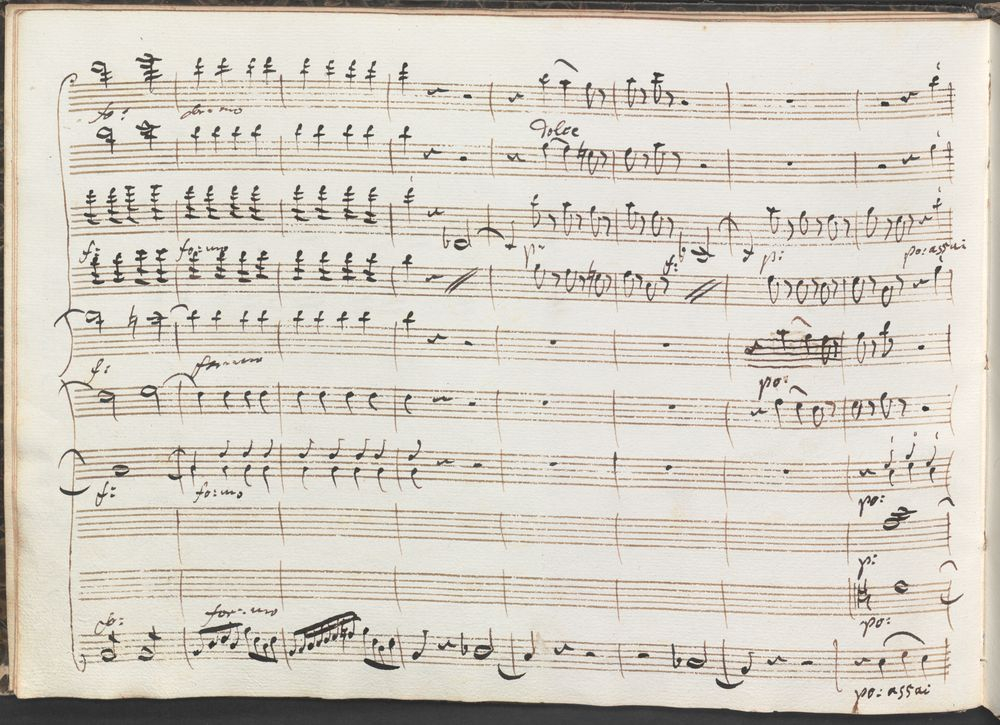 fo: for: mo
Dolce
f: fo: mo p: f: p: po: assai
f: formmo po:
f: fo: mo po:
p:
po:
fo: for: mo
po: assai